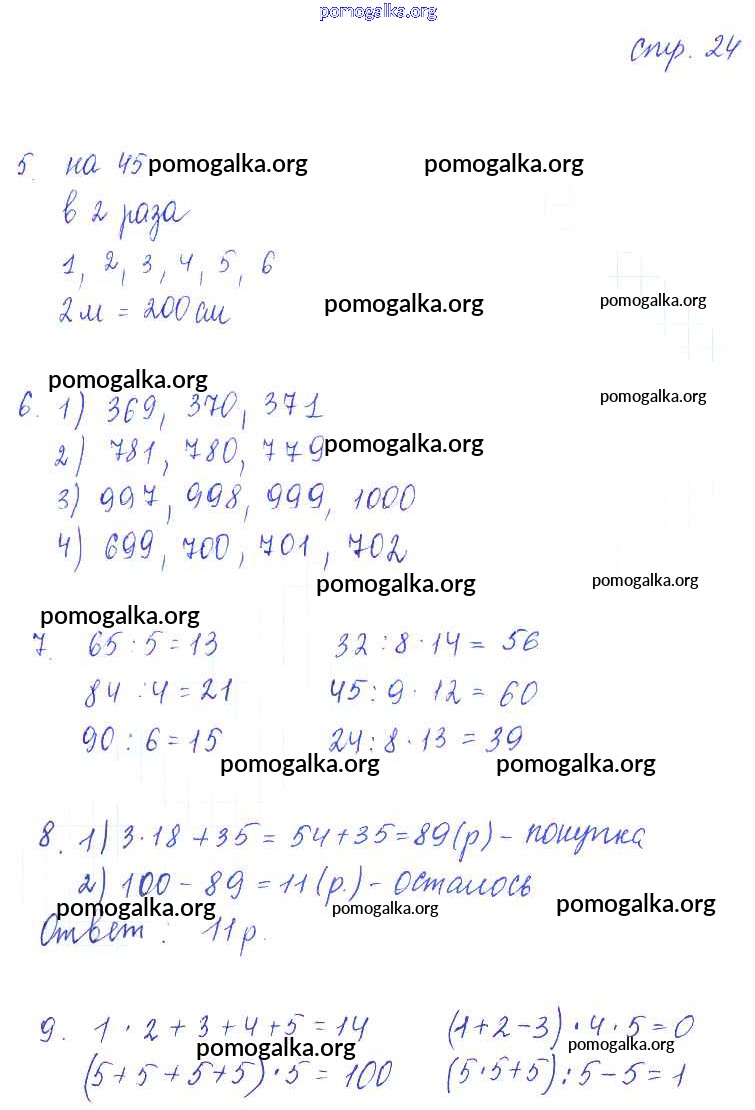 pomogalka.org
стр. 24
5. на 45 pomogalka.org pomogalka.org
в 2 раза
1, 2, 3, 4, 5, 6
2м = 200см pomogalka.org pomogalka.org
pomogalka.org pomogalka.org
6. 1) 369, 370, 371
2) 781, 780, 779 pomogalka.org
3) 997, 998, 999, 1000
4) 699, 700, 701, 702
pomogalka.org pomogalka.org
pomogalka.org
7. 65 : 5 = 13 32 : 8 · 14 = 56
84 : 4 = 21 45 : 9 · 12 = 60
90 : 6 = 15 24 : 8 · 13 = 39
pomogalka.org pomogalka.org
8. 1) 3 · 18 + 35 = 54 + 35 = 89 (р) - покупка
2) 100 - 89 = 11 (р.) - осталось
pomogalka.org pomogalka.org pomogalka.org
Ответ : 11 р.
9. 1 · 2 + 3 + 4 + 5 = 14 (1 + 2 - 3) · 4 · 5 = 0
pomogalka.org pomogalka.org
(5 + 5 + 5 + 5) · 5 = 100 (5 · 5 + 5) : 5 - 5 = 1